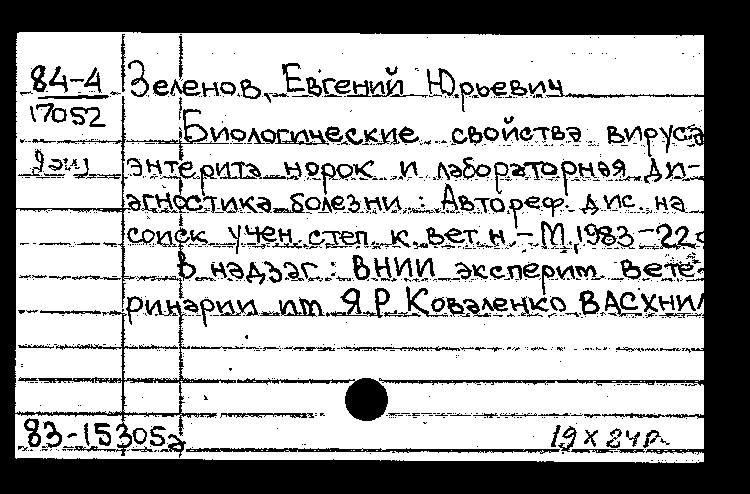 84-4
17052
2 экз
Зеленов, Евгений Юрьевич
Биологические свойства вируса
энтерита норок и лабораторная ди-
агностика болезни : Автореф. дис. на
соиск учен. степ. к. вет. н. - М, 1983 - 22с
В надзаг : ВНИИ эксперим вете-
ринарии им Я.Р. Коваленко ВАСХНИЛ
83-15305а